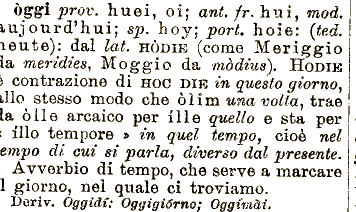 òggi prov. huei, oi; ant. fr. hui, mod.
aujourd'hui; sp. hoy; port. hoie: (ted.
heute): dal lat. HÒDIE (come Meriggio
da meridies, Moggio da mòdius). HODIE
è contrazione di HOC DIE in questo giorno,
allo stesso modo che òlim una volta, trae
da òlle arcaico per ille quello e sta per
« illo tempore » in quel tempo, cioè nel
tempo di cui si parla, diverso dal presente.
Avverbio di tempo, che serve a marcare
il giorno, nel quale ci troviamo.
Deriv. Oggidí: Oggigiórno; Oggimài.